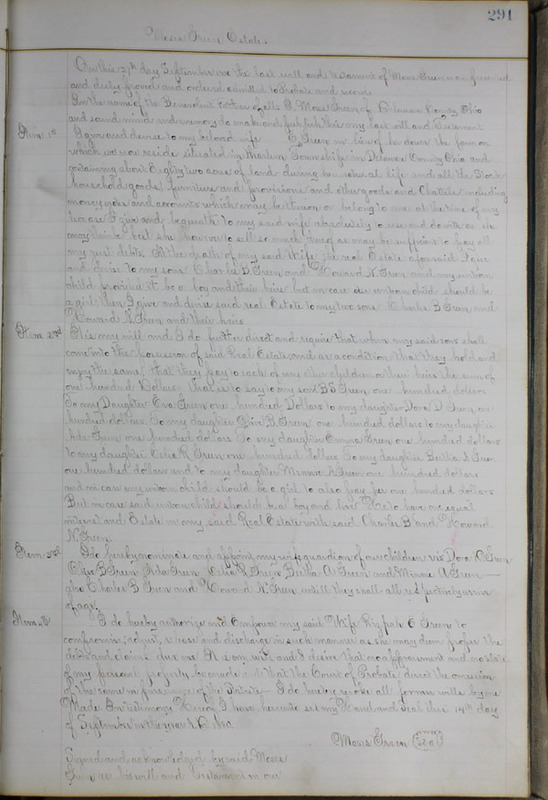 291
Moses Green Estate.
On this 27th day September the last will and testament of Moses Green was presented
and duly proved and ordered admitted to Probate and record
In the name of the Benevolent Father of all I Moses Green of Delaware County Ohio
and sound mind and memory do make and publish this my last will and testament
Item 1st I give and devise to my beloved wife C. Green in lieu of her dower the farm on
which we now reside situated in Harlem Township in Delaware County Ohio and
containing about Eighty two acres of land during her natural life and all the stock
household goods furniture and provisions and other goods and Chattels including
moneys and accounts which may be thereon or belong to me at the time of my
decease I give and bequeath to my said wife absolutely to use and do with as she
may think best she however to sell so much thereof as may be sufficient to pay all
my just debts. At the death of my said Wife the real Estate aforesaid I give
and devise to my sons Charles B. Green and Howard N. Green and my unborn
child provided it be a boy and their heirs but in case said unborn child should be
a girl then I give and devise said real Estate to my two sons Charles B. Green and
Howard N. Green and their heirs
Item 2nd It is my will and I do further direct and require that when my said sons shall
come into the possession of said Real Estate and as a condition that they hold and
enjoy the same, that they pay to each of my other children or their heirs the sum of
one hundred Dollars that is to say to my son B S Green one hundred dollars
To my Daughter Eva Green one hundred Dollars to my daughter Dora D Green one
hundred dollars. To my daughter B. Green one hundred dollars to my daughter
Ada Green one hundred dollars To my daughter Emma Green one hundred dollars
to my daughter Celia R Green one hundred dollars To my daughter Bertha Green
one hundred dollars and to my daughter Minnie A Green one hundred dollars
and in case my unborn child should be a girl to also pay her one hundred dollars
But in case said unborn child should be a boy and live He to have an equal
interest and Estate in my said Real Estate with said Charles B and Howard
N. Green.
Item 3rd I do hereby nominate and appoint my wife guardian of our children viz Dora Green
B Green Ada Green Celia R Green Bertha A Green and Minnie A Green
also Charles B Green and Howard N. Green until they shall all
of age.
Item 4th I do hereby authorize and Empower my said Wife C Green to
compromise, adjust, release and discharge in such manner as she may deem proper the
debts and claims due me. It is my will and I desire that no appraisment and no sale
of my personal property be made and that the Court of Probate direct the omission
of the same in pursuance of the Statute. I do hereby revoke all former wills by me
Made. In testimony Hereof I have hereunto set my Hand and Seal this 14th day
of September in the year
Moses Green (Seal)
Signed and acknowledged by said Moses
Green as his will and testament in our